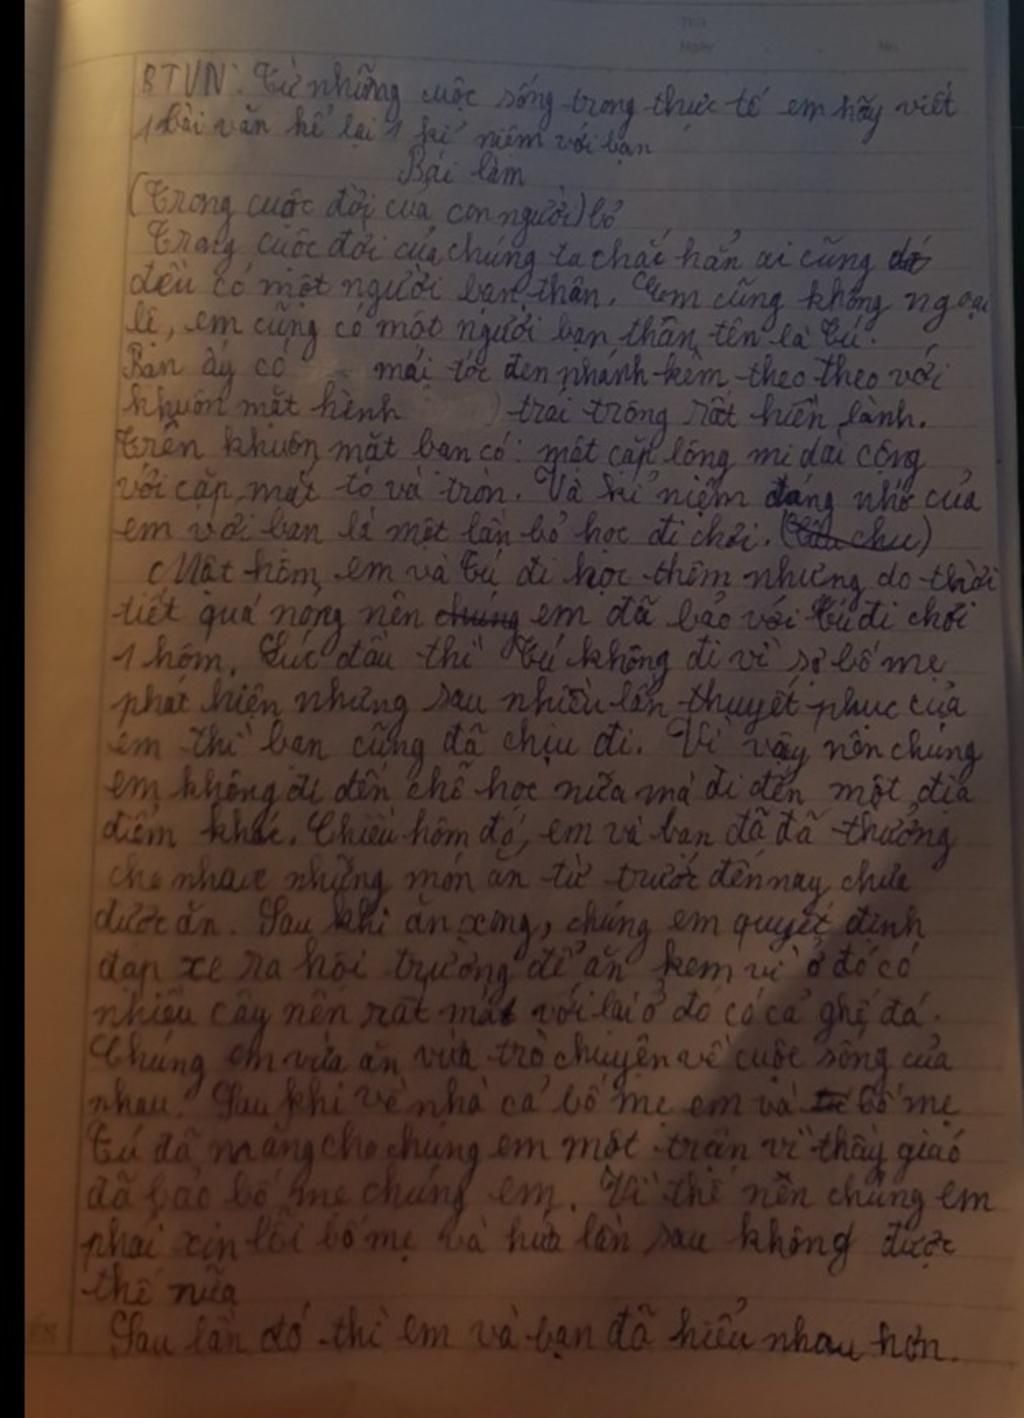 BTVN: Từ những cuộc sống trong thực tế em hãy viết
1 bài văn kể lại 1 kỉ niệm với bạn
Bài làm
(Trong cuộc đời của con người) bỏ
Trong cuộc đời của chúng ta chắc hẳn ai cũng
đều có một người bạn thân. Em cũng không ngoại
lệ, em cũng có một người bạn thân tên là Tú.
Bạn ấy có mái tóc đen nhánh kèm theo theo với
khuôn mặt hình trái trông rất hiền lành.
Trên khuôn mặt bạn có một cặp lông mi dài cong
với cặp mắt to và tròn. Và kỉ niệm đáng nhớ của
em với bạn là một lần bỏ học đi chơi.
Một hôm, em và Tú đi học thêm nhưng do thời
tiết quá nóng nên em đã bảo với Tú đi chơi
1 hôm. Lúc đầu thì Tú không đi vì sợ bố mẹ
phát hiện nhưng sau nhiều lần thuyết phục của
em thì bạn cũng đã chịu đi. Vì vậy nên chúng
em không đi đến chỗ học nữa mà đi đến một địa
điểm khác. Chiều hôm đó, em và bạn đã đã thưởng
cho nhau những món ăn từ trước đến nay chưa
được ăn. Sau khi ăn xong, chúng em quyết định
đạp xe ra hội trường để ăn kem vì ở đó có
nhiều cây nên rất mát với lại ở đó có cả ghế đá.
Chúng em vừa ăn vừa trò chuyện về cuộc sống của
nhau. Sau khi về nhà cả bố mẹ em và bố mẹ
Tú đã mắng cho chúng em một trận vì thầy giáo
đã báo bố mẹ chúng em. Vì thế nên chúng em
phải xin lỗi bố mẹ và hứa lần sau không được
thế nữa
Sau lần đó thì em và bạn đã hiểu nhau hơn.